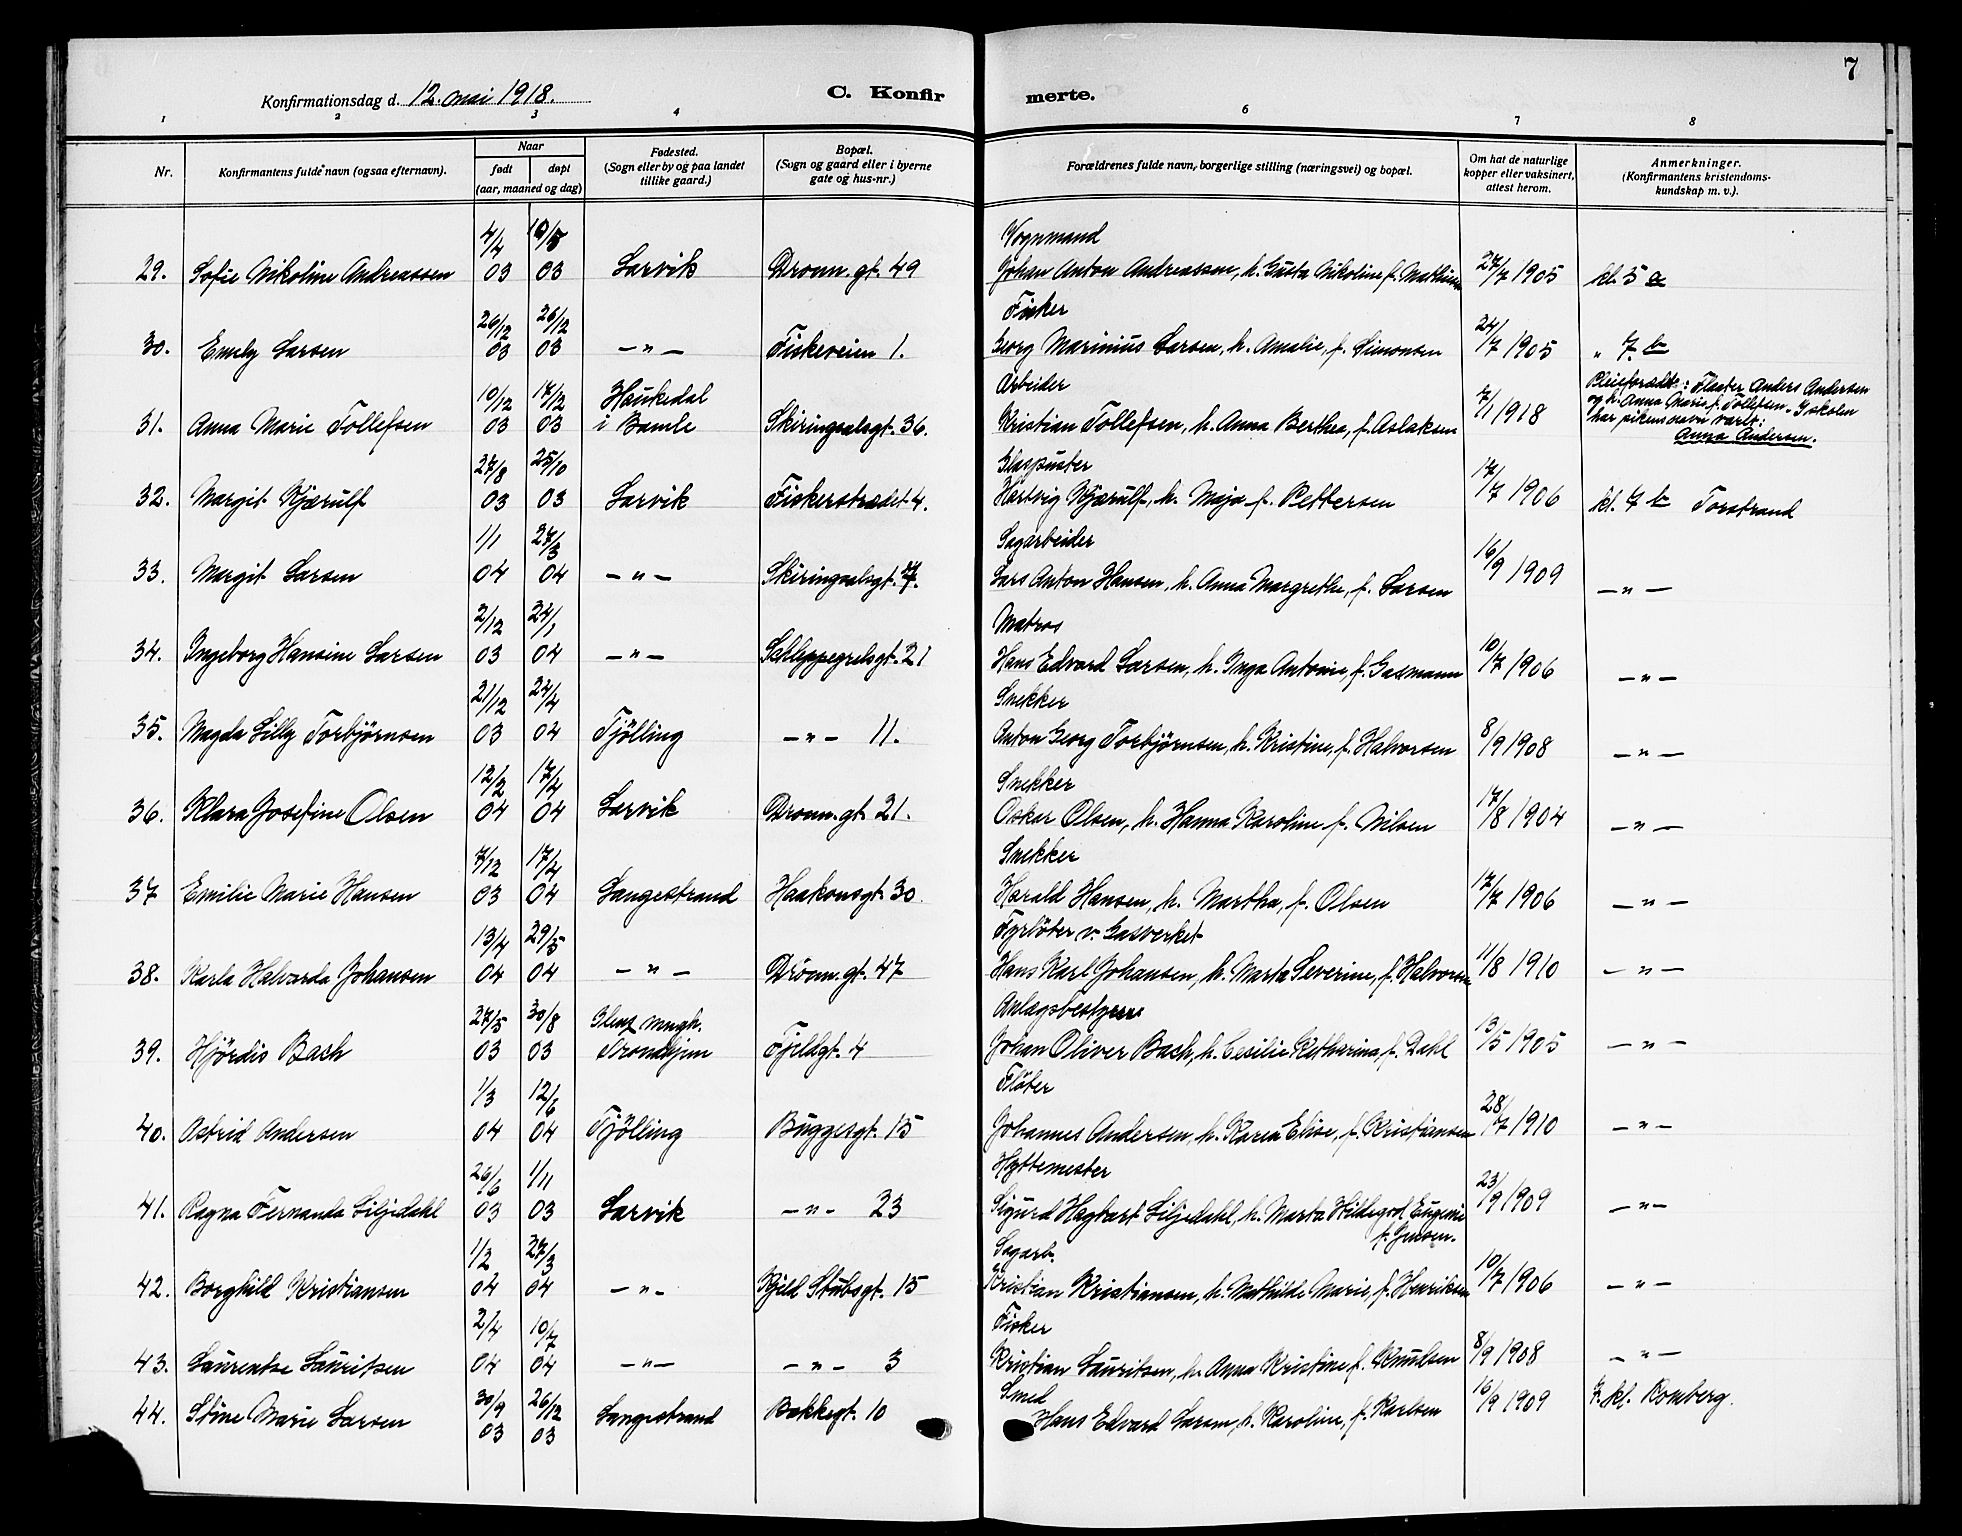 Konfirmationsdag d. 12. mai 1918. C. Konfir merte. 7
1 2 3 4 5 6 7 8
Nr. Konfirmantens fulde navn (ogsaa efternavn). Naar født døpt (aar, maaned og dag) Fødested. (Sogn eller by og paa landet tillike gaard.) Bopæl. (Sogn og gaard eller i byerne gate og hus-nr.) Forældrenes fulde navn, borgerlige stilling (næringsvei) og bopæl. Om hat de naturlige kopper eller vaksinert, attest herom. Anmerkninger. (Konfirmantens kristendoms-kundskap m. v.).
4/4 Vognmand
29. Sofie Nikoline Andreassen 03 03 Larvik Dronn. gt. 49 Johan Anton Andreassen, h. Gusta Nikoline f. 27/7 1905 kl. 5 a
26/12 26/12 Fisker
30. Emely Larsen 03 03 —"— Fiskeveien 1. Georg Marinius Larsen, h. Amalie, f. Simonsen 24/7 1905 " 7. b
10/12 17/12 Haukedal Arbeider Pleieforældre: Fløter Anders Andersen
31. Anna Marie Tollefsen 03 03 i Bamle Skiringsalsgt. 36. Kristian Tollefsen, h. Anna Berthea, f. Aslaksen 7/1 1918 og h. Anna Marie f. Tollefsen. I skolen
har pikens navn vært:
Anna Andersen.
27/8 25/10 Glaspuster
32. Margit Kjærulf 03 03 Larvik Fiskerstrædet 4. Hartvig Kjærulf, h. Maja f. Pettersen 17/7 1906 kl. 7 b Torstrand
1/1 27/3 Sagarbeider
33. Margit Larsen 04 04 —"— Skiringsalsgt. Lars Anton Hansen, h. Anna Margrethe, f. Larsen 16/9 1909 —"—
2/12 24/1 Matros
34. Ingeborg Hansine Larsen 03 04 —"— Schleppegrelsgt. 21 Hans Edvard Larsen, h. Inga Antonie, f. Gasmann 10/7 1906 —"—
21/12 24/4 Snekker
35. Magda Lilly Torbjørnsen 03 04 Tjölling —"— 11. Anton Georg Torbjørnsen, h. Kristine, f. Halvorsen 8/9 1908 —"—
12/2 17/4 Snekker
36. Klara Josefine Olsen 04 04 Larvik Dronn. gt. 21. Oskar Olsen, h. Hanna Karoline f. Nilsen 17/8 1904 —"—
7/12 17/4 Snekker
37 Emilie Marie Hansen 03 04 Langestrand Haakonsgt. 30. Harald Hansen, h. Martha, f. Olsen 17/7 1906 —"—
13/4 29/5 Fyrböter v. Gasverket
38. Karla Halvarda Johansen 04 04 —"— Dronn. gt. 47 Hans Karl Johansen, h. Marta Severine, f. Halvorsen 11/8 1910 —"—
27/5 30/8 Ilens mngh. Anlægsbestyrer
39. Hjördis Bach 03 03 Trondhjem Fjeldgt. 4 Johan Oliver Bach, h. Cesilie Katharina, f. Dahl 13/5 1905 —"—
1/3 12/6 Flöter
40. Astrid Andersen 04 04 Tjölling Buggesgt. 15 Johannes Andersen, h. Karen Elise, f. Kristiansen 28/7 1910 —"—
26/6 1/11 Hyttemester
41. Ragna Fernanda Liljedahl 03 03 Larvik —"— 23 Sigurd Hagbart Liljedahl, h. Marta Hildegod Eugenie 23/9 1909 —"—
f. Jensen.
1/2 27/3 Sagarb.
42. Borghild Kristiansen 04 04 —"— Kjeld Stubsgt. 15 Kristian Kristiansen, h. Mathilde Marie, f. Henriksen 10/7 1906 —"—
2/4 10/7 Fisker
43. Laurentse Lauritsen 04 04 —"— —"— 3 Kristian Lauritsen, h. Anna Kristine f. Knudsen 8/9 1908 —"—
30/9 26/12 Smed
44. Stine Marie Larsen 03 03 Langestrand Bakkegt. 10 Hans Edvard Larsen, h. Karoline, f. Karlsen 16/9 1909 7. kl. Romberg.